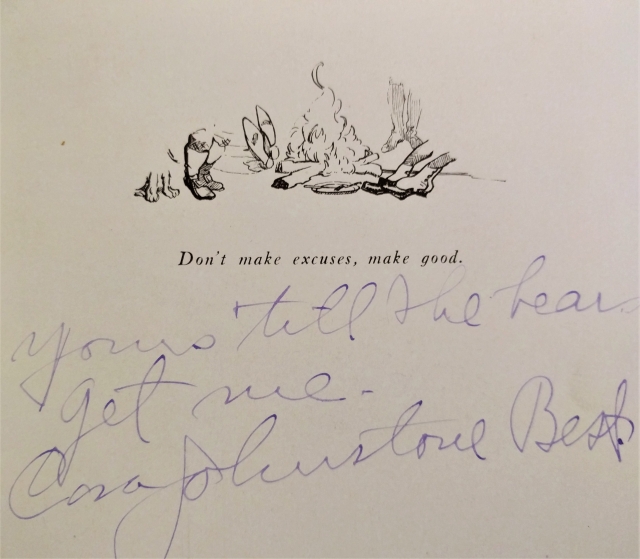 Don't make excuses, make good.
yours 'till the bears
get me.
Cora Johnstone Best